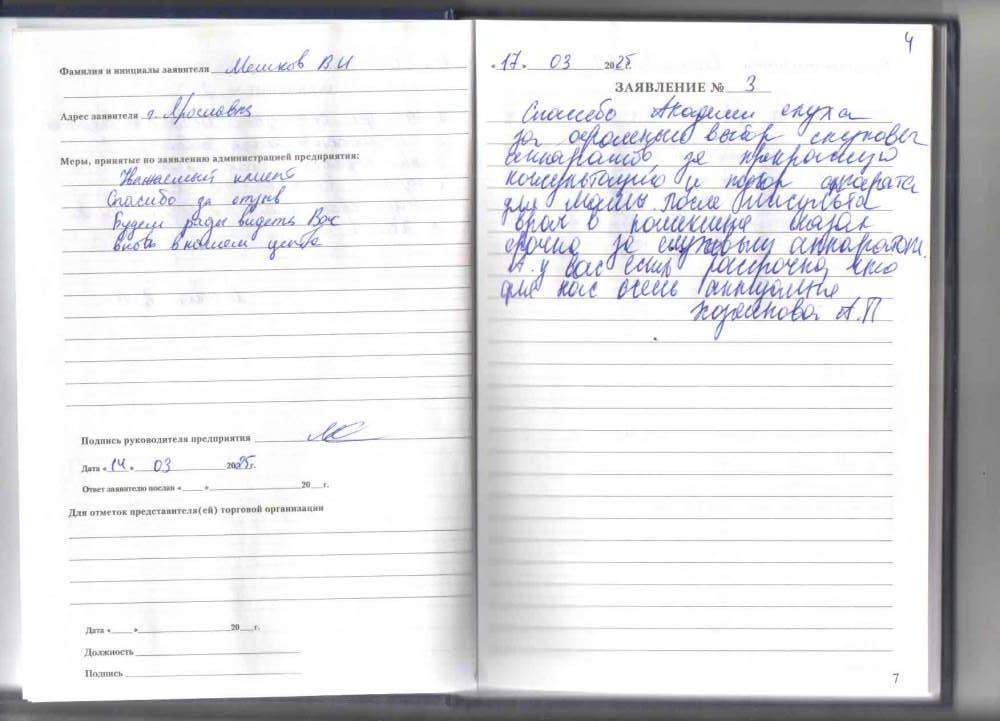 Фамилия и инициалы заявителя Мешков В И
Адрес заявителя г. Ярославль
Меры, принятые по заявлению администрацией предприятия:
Уважаемый клиент
Спасибо за отзыв
Будем рады видеть Вас
вновь в нашем центре
Подпись руководителя предприятия
Дата «14» 03 2025г.
Ответ заявителю послан « » 20 г.
Для отметок представителя(ей) торговой организации
Дата « » 20 г.
Должность
Подпись
4
«17» 03 2025г.
ЗАЯВЛЕНИЕ № 3
Спасибо Академии слуха
за огромный выбор слуховых
аппаратов за прекрасную
консультацию и подбор аппарата
для мамы. После инсульта
врач в поликлинике сказал
срочно за слуховым аппаратом.
А у вас есть рассрочка, что
для нас очень актуально
А.П
7